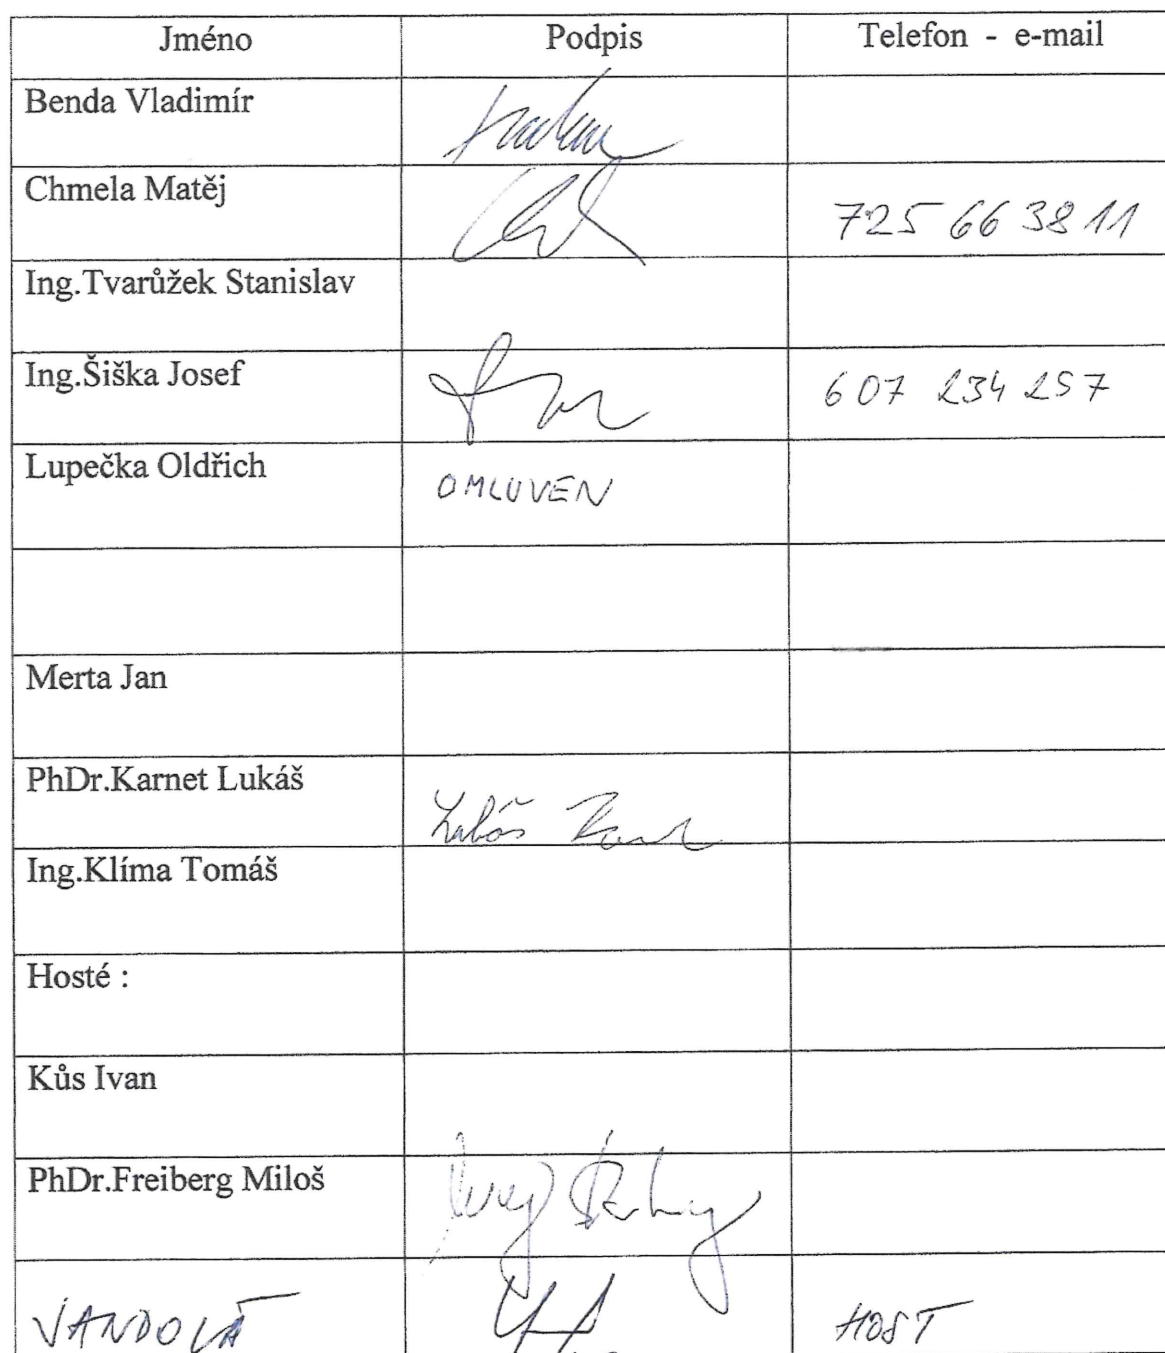 Jméno Podpis Telefon - e-mail
Benda Vladimír
Chmela Matěj 725 66 38 11
Ing.Tvarůžek Stanislav
Ing.Šiška Josef 607 234 257
Lupečka Oldřich OMLUVEN
Merta Jan
PhDr.Karnet Lukáš Lukáš
Ing.Klíma Tomáš
Hosté :
Kůs Ivan
PhDr.Freiberg Miloš
VANDOVÁ HOST